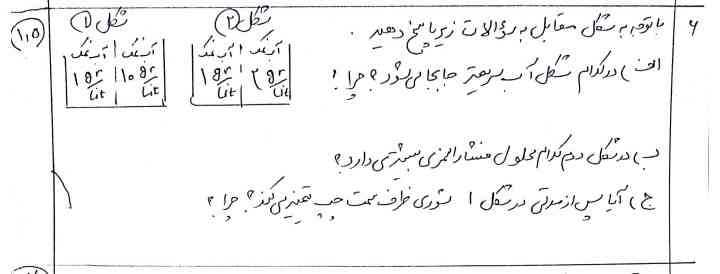 ۶ با توجه به شکل مقابل به سؤالات زیر پاسخ دهید . شکل ② شکل ① ①٫۵
آب نمک آب نمک آب نمک آب نمک
الف) در کدام شکل آب سریعتر جابجا می شود ؟ چرا ! ۲ gr/Lit ۱ gr/Lit ۱۰ gr/Lit ۱ gr/Lit
ب) در شکل دوم کدام محلول فشار اسمزی بیشتری دارد ؟
ج) آیا پس از مدتی در شکل ۱ شوری ظرف سمت چپ تغییر می کند ؟ چرا ؟